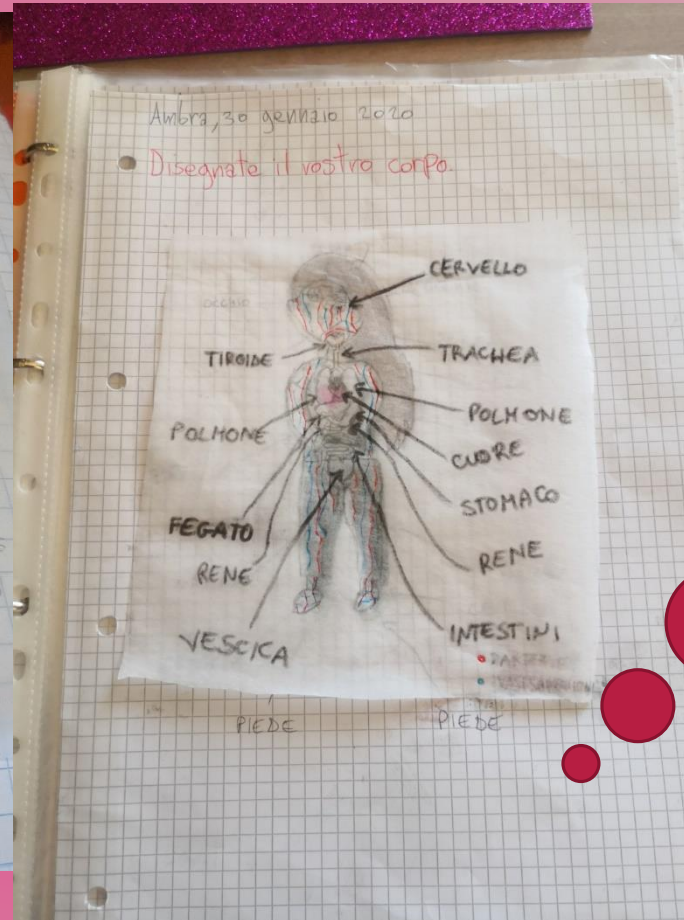 Ambra, 30 gennaio 2020
Disegnate il vostro corpo.
CERVELLO
OCCHIO
TIROIDE
TRACHEA
POLMONE
POLMONE
CUORE
STOMACO
FEGATO
RENE
RENE
VESCICA
INTESTINI
PIEDE
PIEDE